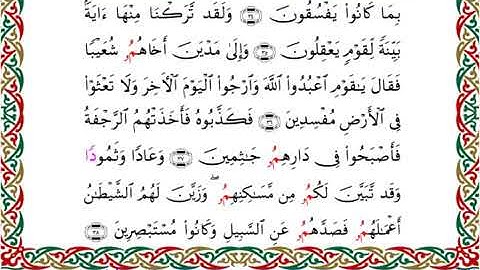 بِمَا كَانُوا۟ يَفْسُقُونَ ۝٣٤ وَلَقَد تَّرَكْنَا مِنْهَا ءَايَةَۢ
بَيِّنَةً لِّقَوْمٍ يَعْقِلُونَ ۝٣٥ وَإِلَىٰ مَدْيَنَ أَخَاهُمُۥ شُعَيْبًا
فَقَالَ يَٰقَوْمِ ٱعْبُدُوا۟ ٱللَّهَ وَٱرْجُوا۟ ٱلْيَوْمَ ٱلْأَخِرَ وَلَا تَعْثَوْا۟
فِى ٱلْأَرْضِ مُفْسِدِينَ ۝٣٦ فَكَذَّبُوهُ فَأَخَذَتْهُمُ ٱلرَّجْفَةُ
فَأَصْبَحُوا۟ فِى دَارِهِمُۥ جَٰثِمِينَ ۝٣٧ وَعَادًا وَثَمُودًا
وَقَد تَّبَيَّنَ لَكُمُۥ مِن مَّسَٰكِنِهِمُۥ ۖ وَزَيَّنَ لَهُمُ ٱلشَّيْطَٰنُ
أَعْمَٰلَهُمُۥ فَصَدَّهُمُۥ عَنِ ٱلسَّبِيلِ وَكَانُوا۟ مُسْتَبْصِرِينَ ۝٣٨